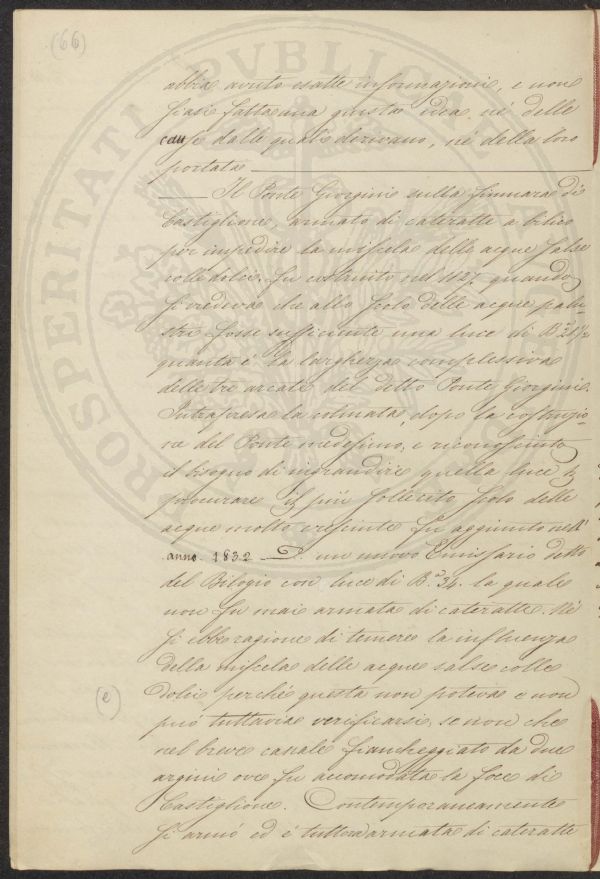 (66)
PROSPERITATI PVBLICAE
abbia avuto esatte informazioni, e non
siasi fatta una giusta idea, né delle
cause dalle quali derivano, né della loro
portata
Il Ponte Giorgini sulla fiumara di
Castiglione, armato di cateratte a bilico
per impedire la miscela delle acque salse
colle dolci, fu costruito nel 1827. quando
si credeva che allo scolo delle acque palu-
stri fosse sufficiente una luce di B.a 28 1/2
quanta è la larghezza complessiva
delle tre arcate del detto Ponte Giorgini.
Intrapresa la colmata, dopo la costruzio-
ne del Ponte medesimo, e riconosciuto
il bisogno di ingrandire quella luce p
procurare il più sollecito scolo delle
acque molto cresciute fu aggiunto nell'
anno. 1832 un nuovo Emissario detto
del Bilogio con luce di B.a 34. la quale
non fu mai armata di cateratte. Né
si ebbe ragione di temere la influenza
della miscela delle acque salse colle
dolci, perché questa non poteva e non
(e)
può tuttavia verificarsi, se non che
nel breve canale fiancheggiato da due
argini ove fu accomodata la foce di
Castiglione. Contemporaneamente
si armò ed è tuttora armata di cateratte